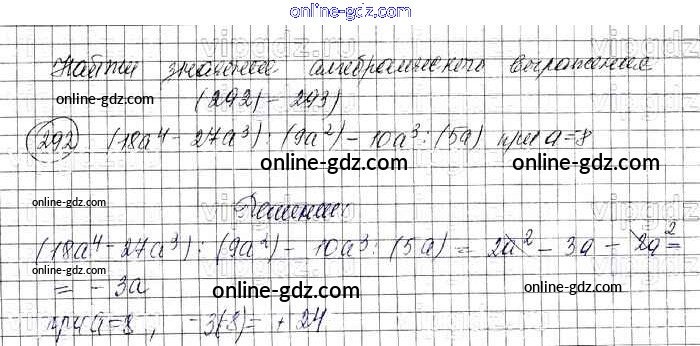 online-gdz.com
Найти значение алгебраического выражения
online-gdz.com online-gdz.com
(292) - 293)
292 (18a⁴ - 27a³) : (9a²) - 10a³ : (5a) при a=8
online-gdz.com online-gdz.com
Решение
online-gdz.com
(18a⁴ - 27a³) : (9a²) - 10a³ : (5a) = 2a² - 3a - 2a² =
online-gdz.com
= - 3a
online-gdz.com online-gdz.com
при a=8, -3(-8) = + 24
online-gdz.com